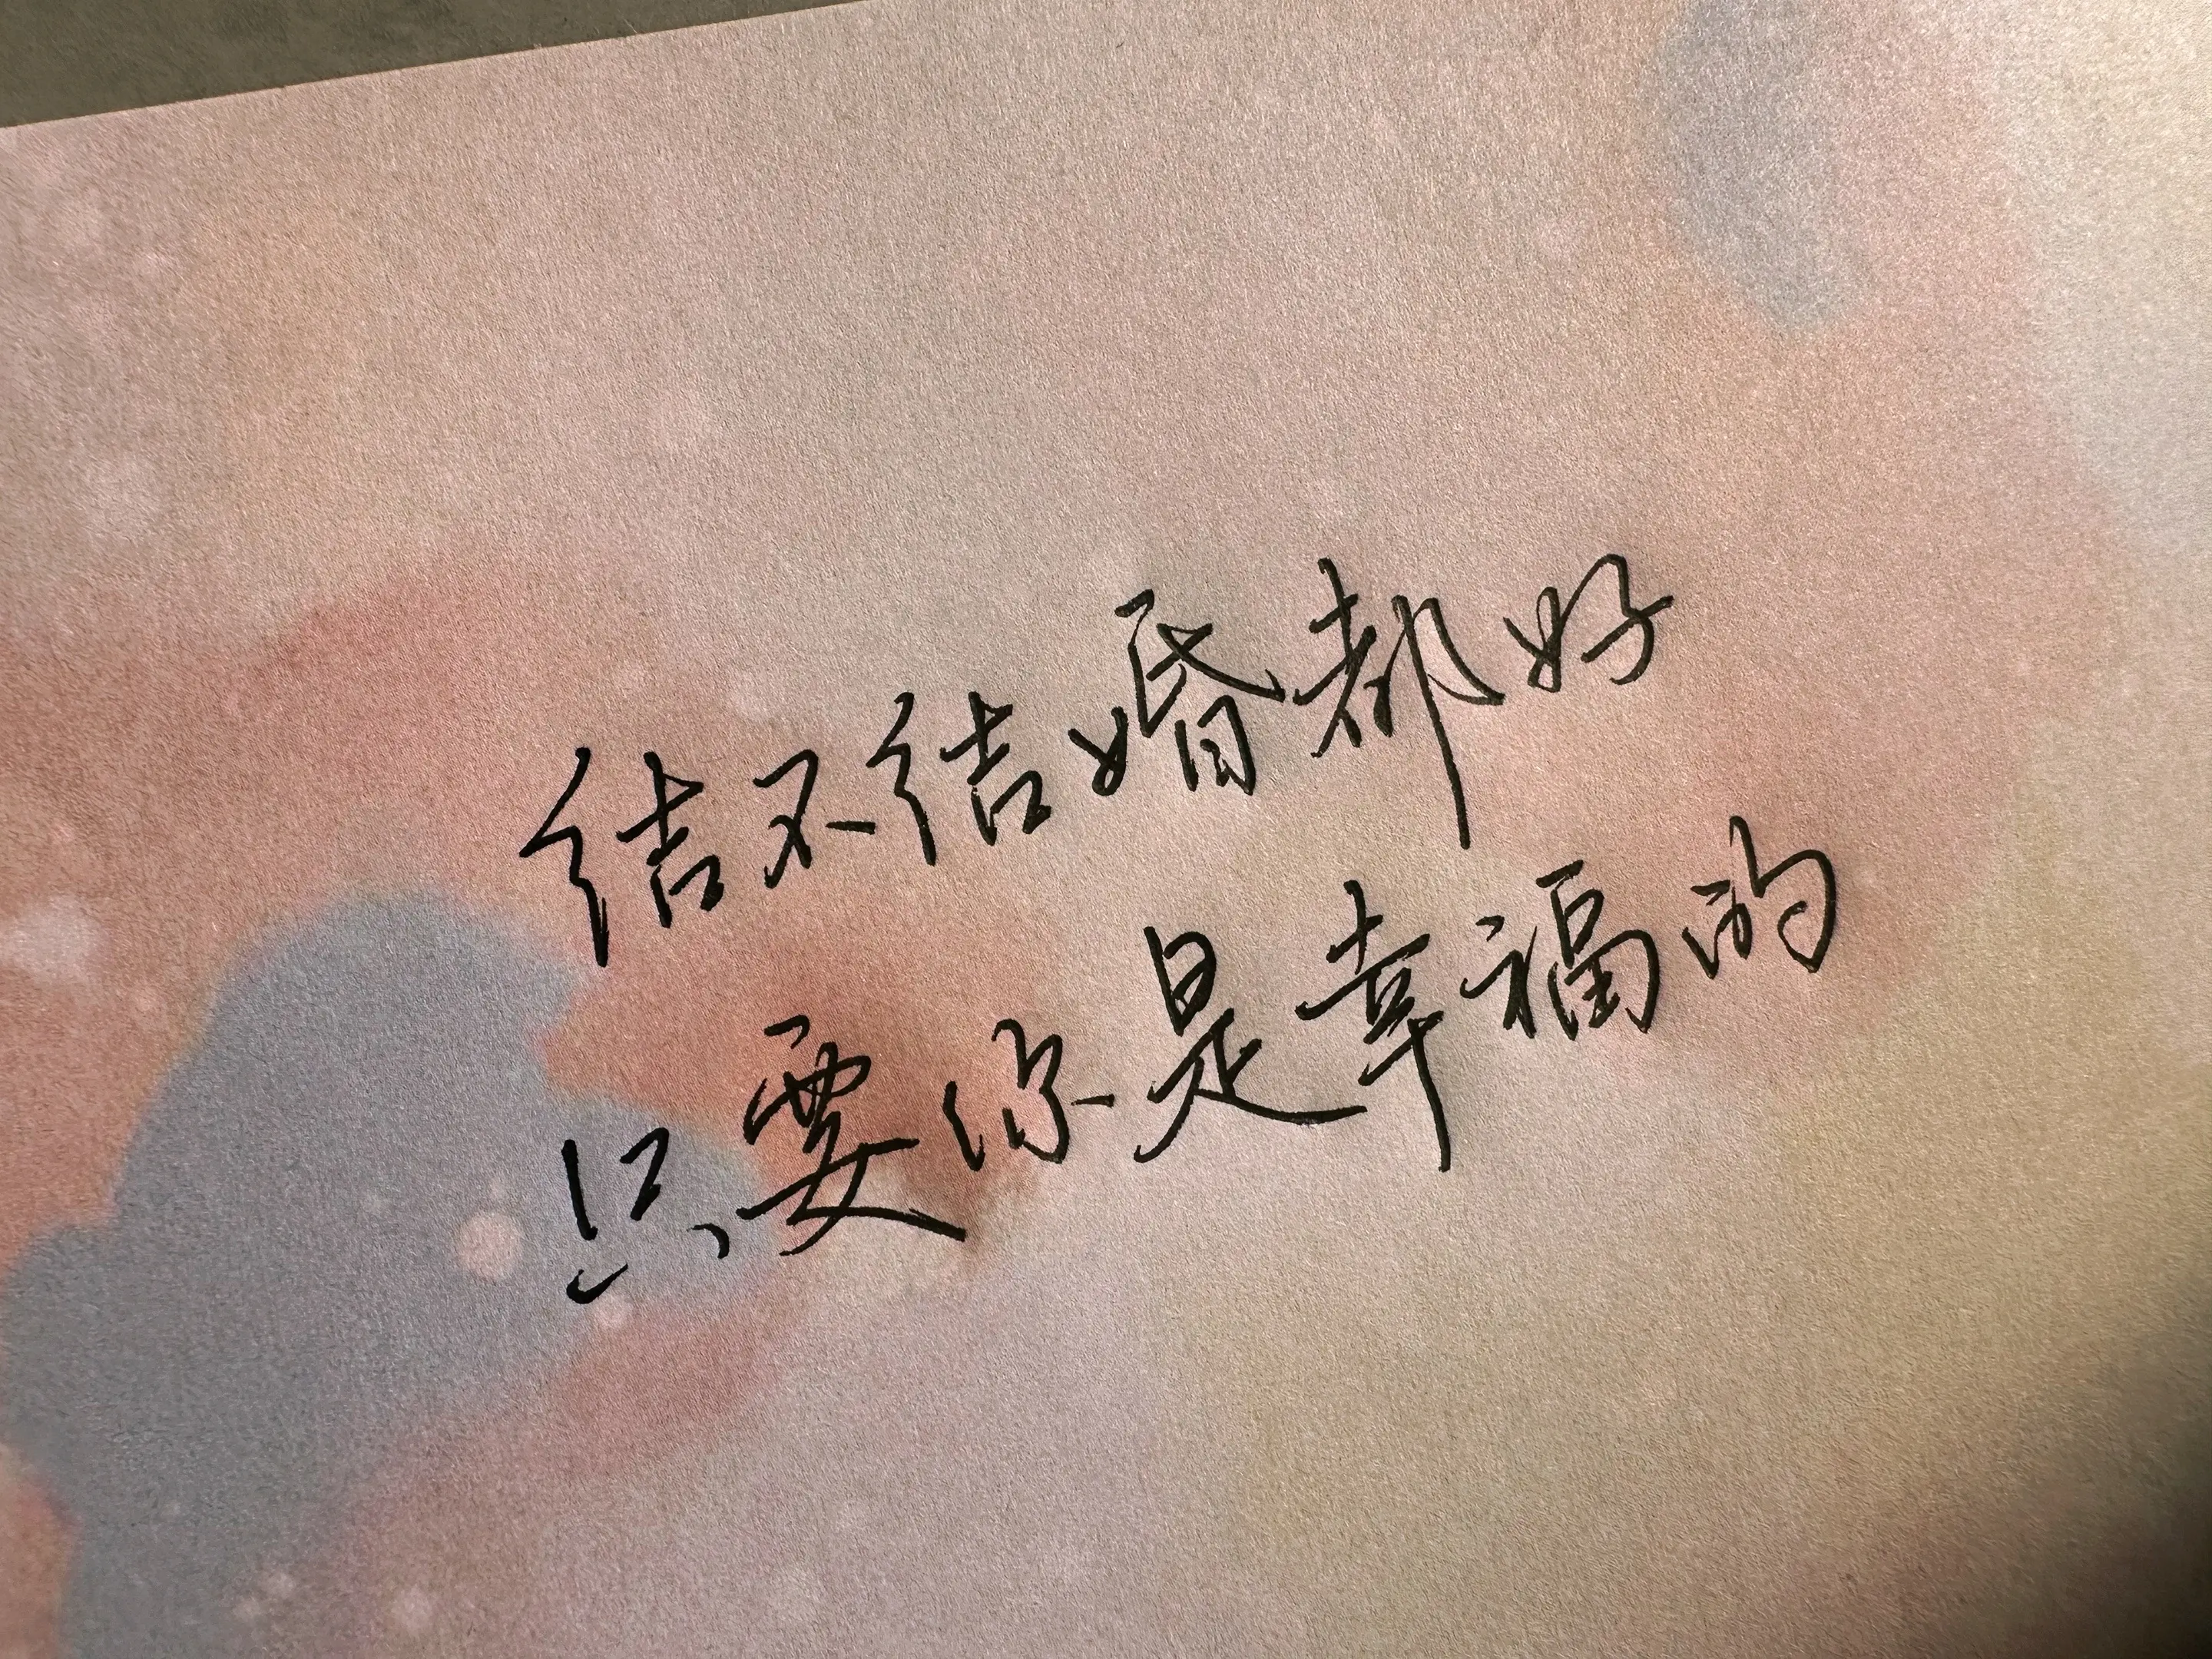 结不结婚都好
只要你是幸福的